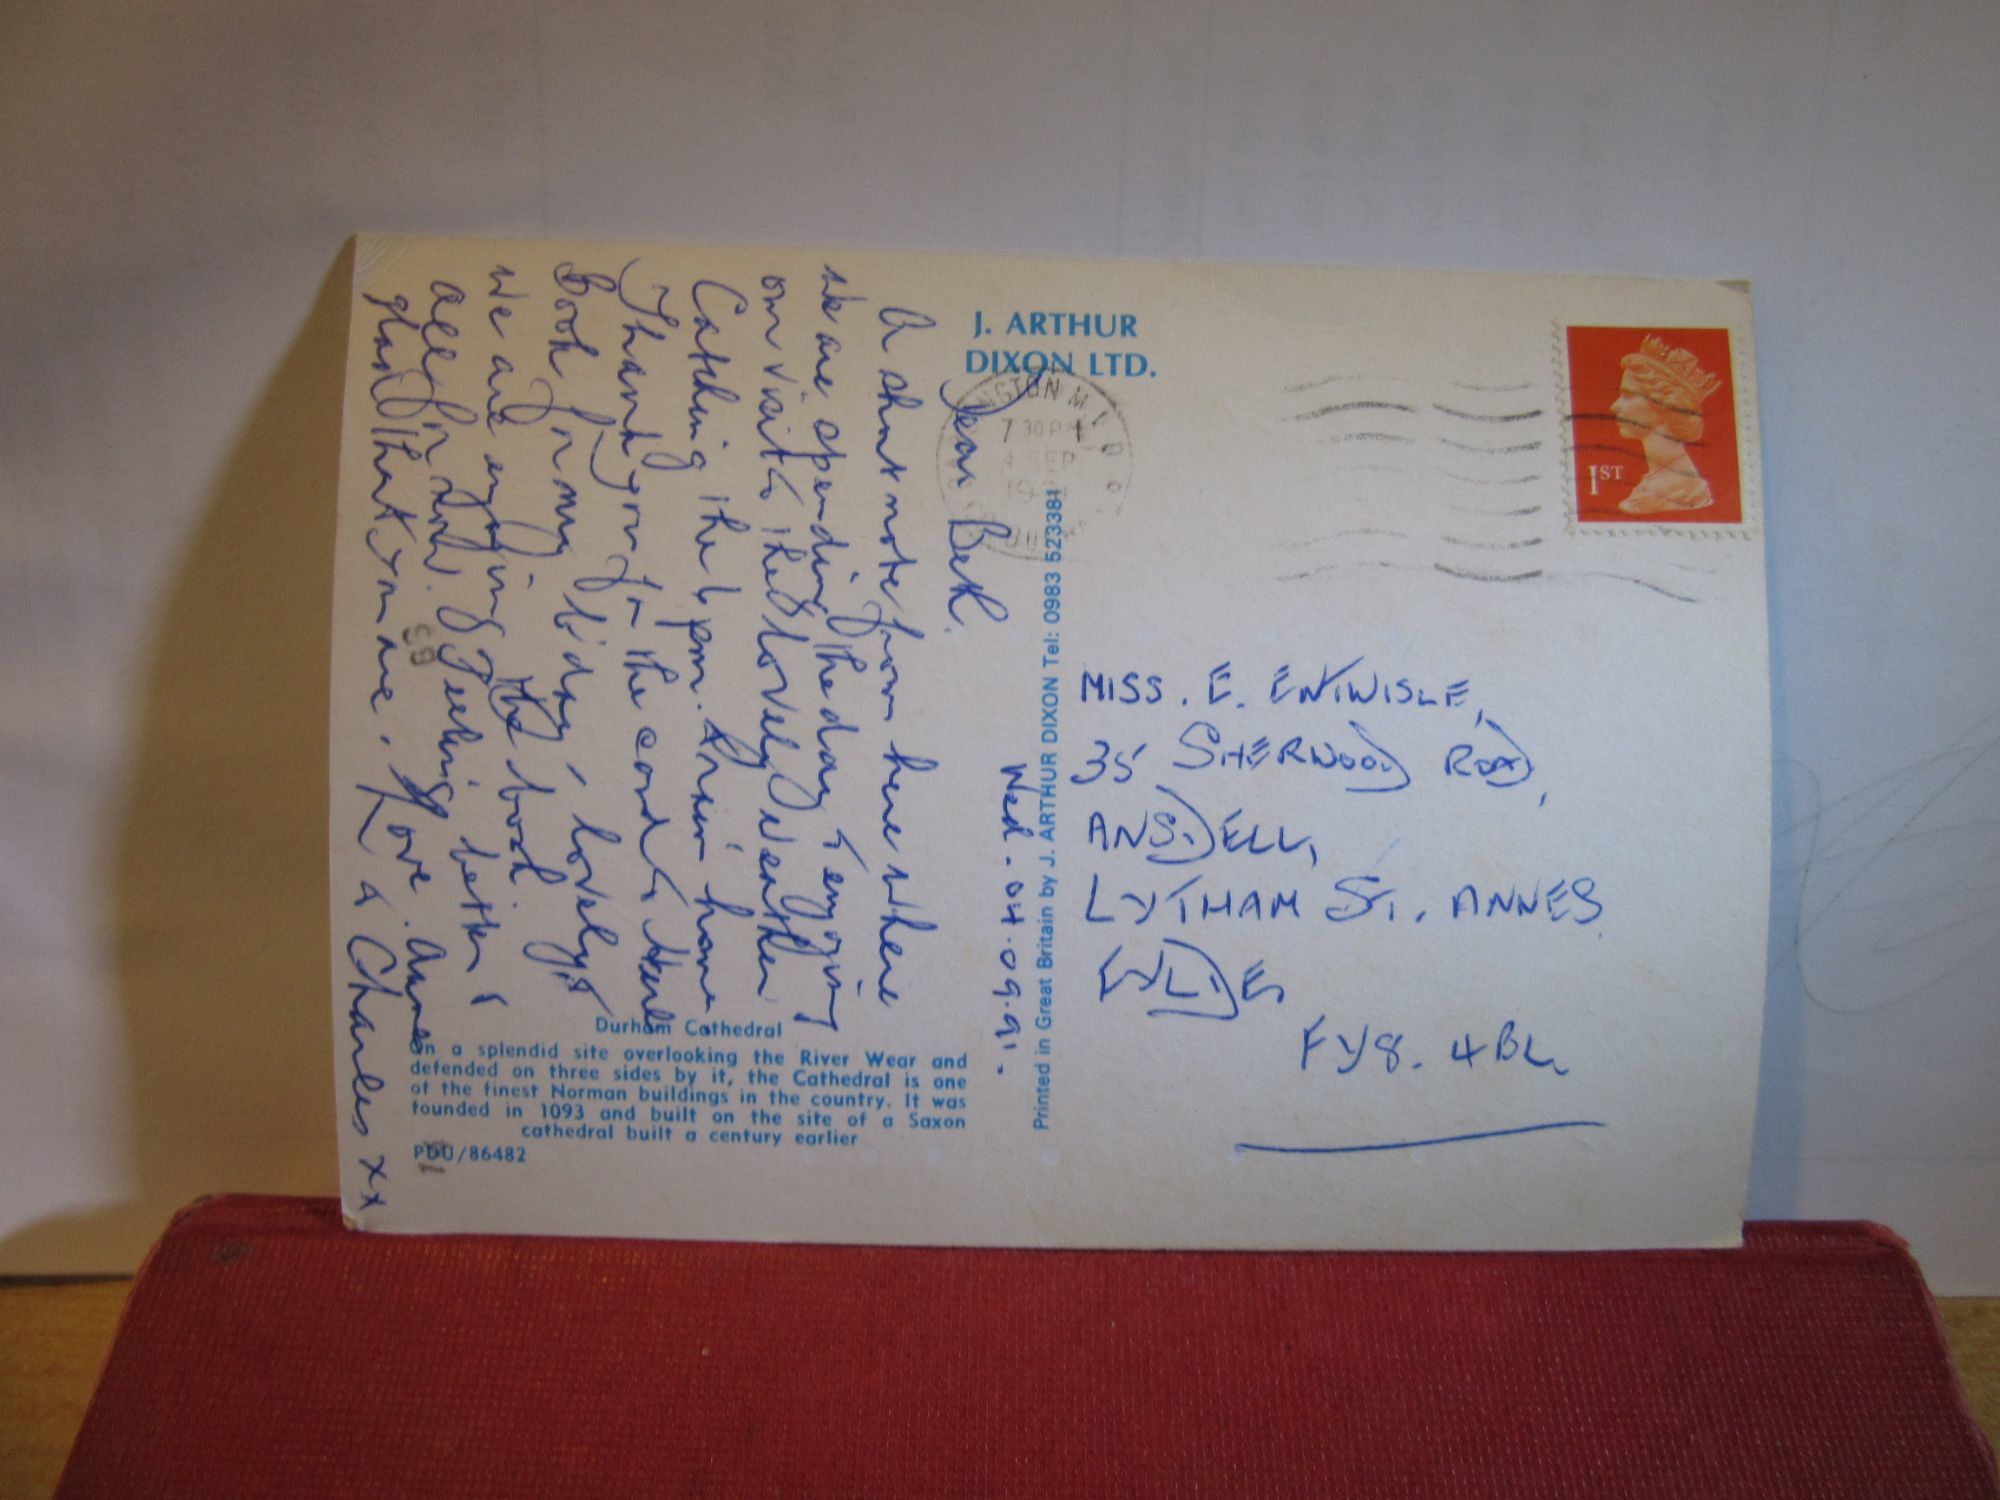 J. ARTHUR
DIXON LTD.
NGTON MIDD
7 30 PM
4 SEP
19
1ST
Wed. 04.09.91.
Dear Beth.
A short note from here where
we are spending the day & enjoying
our visit & the lovely weather
Catching the 6 pm. train home
Thank you for the card &
Book for my b'day, lovely &
we are enjoying the book.
all for now. Feeling better &
glad that you are. Love. Anne
& Charles xx
MISS. E. ENTWISLE,
35 SHERWOOD ROAD,
ANSDELL,
LYTHAM ST. ANNES
FYLDE,
FY8. 4BL.
Printed in Great Britain by J. ARTHUR DIXON Tel: 0983 523381
Durham Cathedral
On a splendid site overlooking the River Wear and
defended on three sides by it, the Cathedral is one
of the finest Norman buildings in the country. It was
founded in 1093 and built on the site of a Saxon
cathedral built a century earlier
PDU/86482